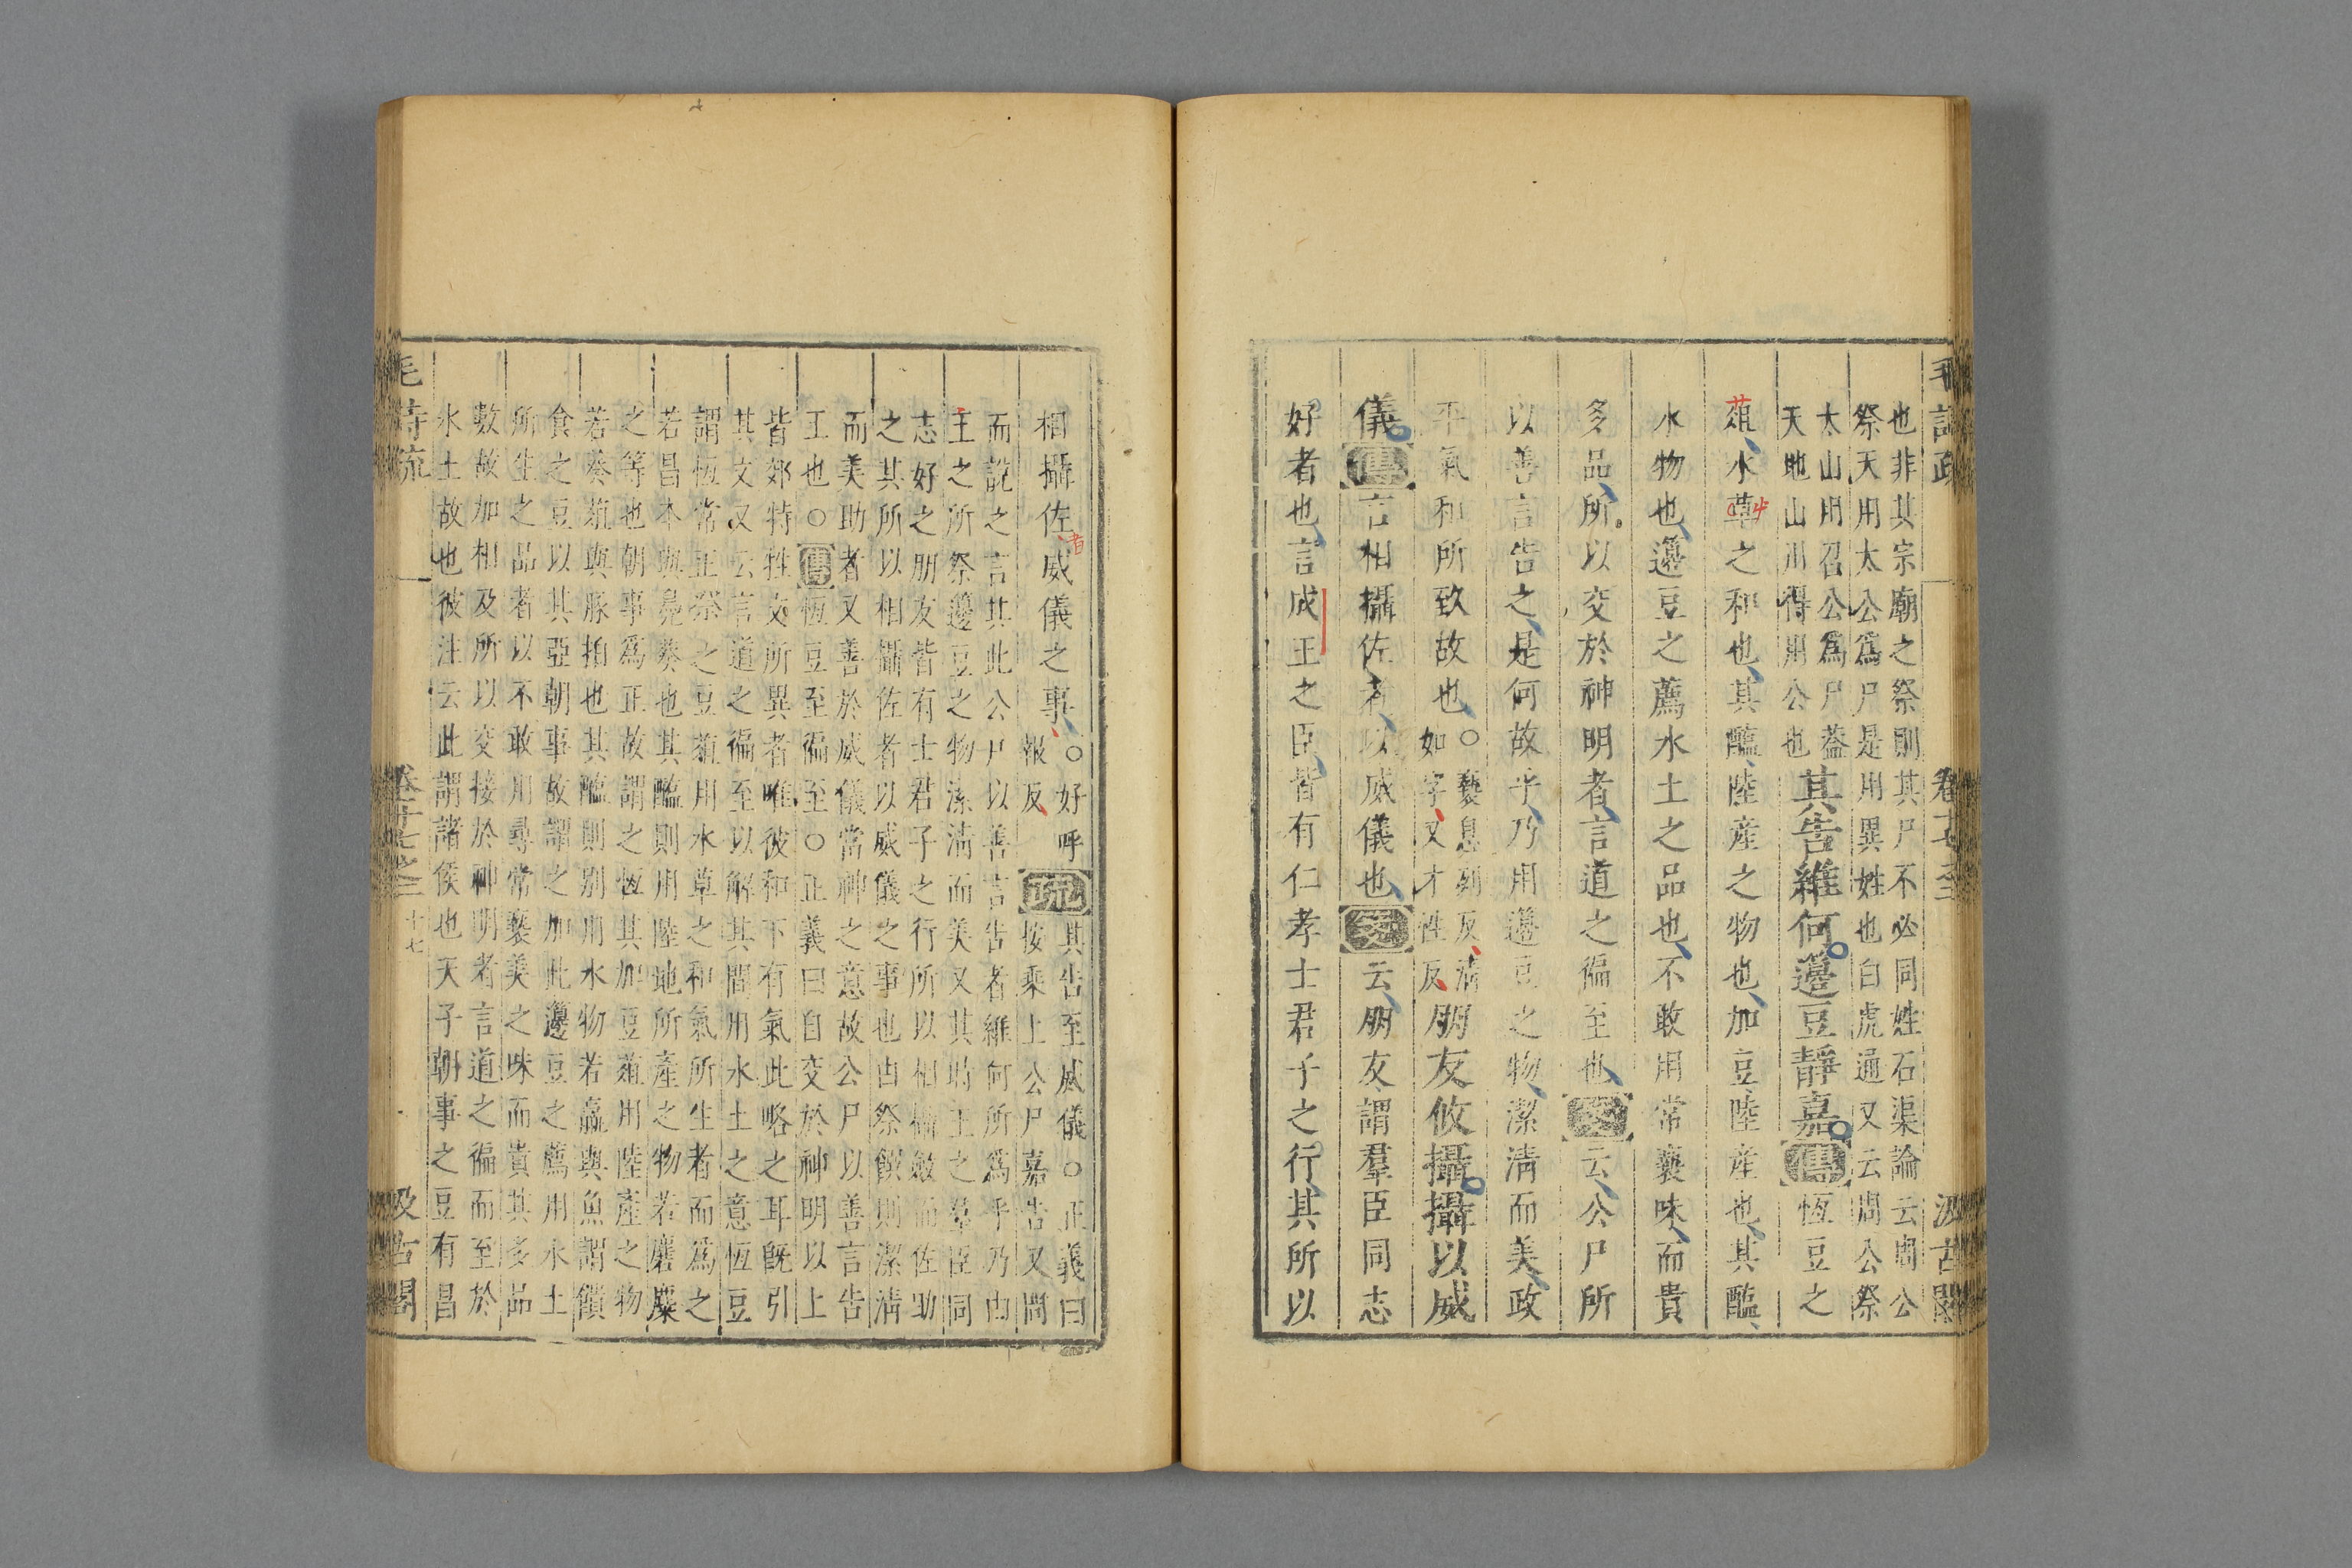 毛詩疏 卷十七之二 汲古閣
也非其宗廟之祭則其尸不必同姓石渠論云周公
祭天用太公爲尸是用異姓也白虎通又云周公祭
太山用召公爲尸葢
天地山川得用公也
其告維何籩豆靜嘉傳恆豆之
菹水草之和也其醢陸産之物也加豆陸産也其醢
水物也籩豆之薦水土之品也不敢用常褻味而貴
多品所以交於神明者言道之徧至也箋云公尸所
以善言告之是何故乎乃用籩豆之物潔淸而美政
平氣和所致故也○褻息列反淸
如字又才性反
朋友攸攝攝以威
儀傳言相攝佐者以威儀也箋云朋友謂羣臣同志
好者也言成王之臣皆有仁孝士君子之行其所以
相攝佐威儀之事○好呼
報反
者
疏其告至威儀○正義曰
按乘上公尸嘉告又問
而說之言其此公尸以善言告者維何所爲乎乃由
主之所祭籩豆之物潔淸而美又其助主之羣臣同
志好之朋友皆有士君子之行所以相攝斂而佐助
之其所以相攝佐者以威儀之事也由祭饌則潔淸
而美助者又善於威儀當神之意故公尸以善言告
王也○傳恆豆至徧至○正義曰自交於神明以上
皆郊特牲文所異者唯彼和下有氣此略之耳旣引
其文又云言道之徧至以解其間用水土之意恆豆
謂恆常正祭之豆菹用水草之和氣所生者而爲之
若昌本與鳧葵也其醢則用陸地所產之物若麏麋
之等也朝事爲正故謂之恆其加豆菹用陸產之物
若葵菹與豚拍也其醢則別用水物若蠃與魚謂饋
食之豆以其亞朝事故謂之加此籩豆之薦用水土
所生之品者以不敢用尋常褻美之味而貴其多品
數故加相及所以交接於神明者言道之徧而至於
水土故也彼注云此謂諸侯也天子朝事之豆有昌
毛詩疏 卷十七之二 十七 汲古閣